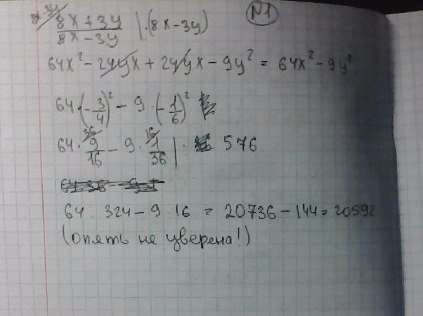 №1
8x+3y / 8x-3y | · (8x-3y)
64x² - 24yx + 24yx - 9y² = 64x² - 9y²
64 · (-3/4)² - 9 · (-1/6)²
64 · 9/16 - 9 · 1/36 | · 576
64 · 324 - 9 · 16 = 20736 - 144 = 20592
(опять не уверена!)